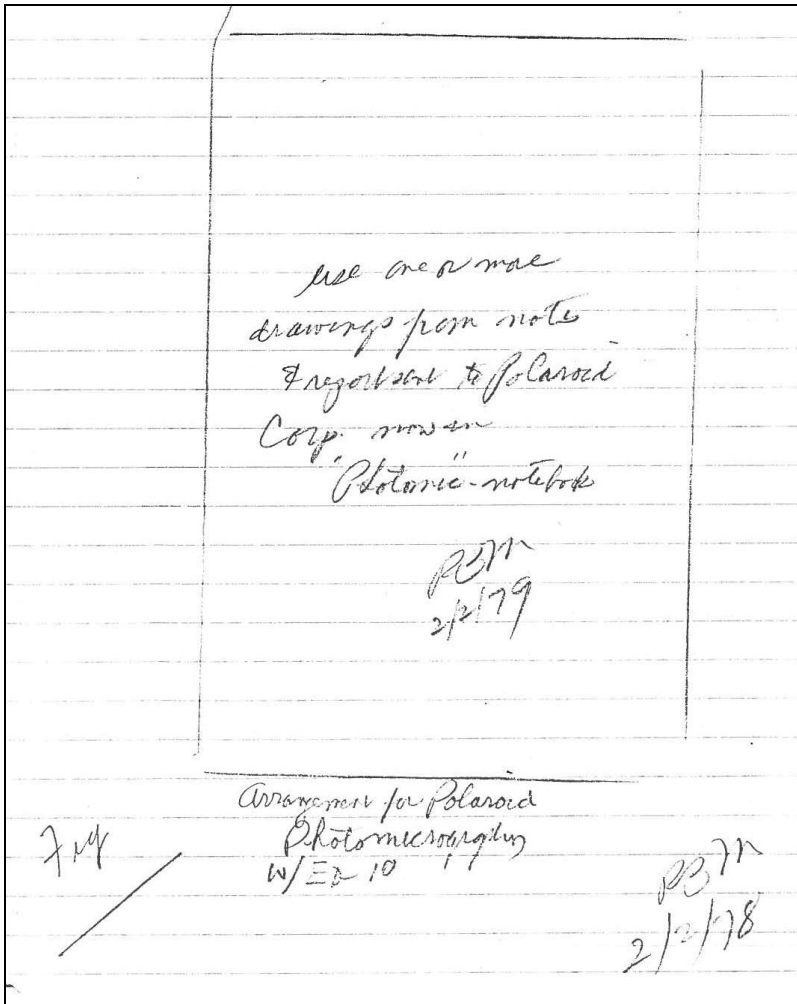 use one or more
drawings from note
& report sent to Polaroid
Corp. now in
"Photomic"-notebook
PBM
2/2/79
Arrangement for Polaroid
Photomicrography
W/ 10
Fig
PBM
2/2/78